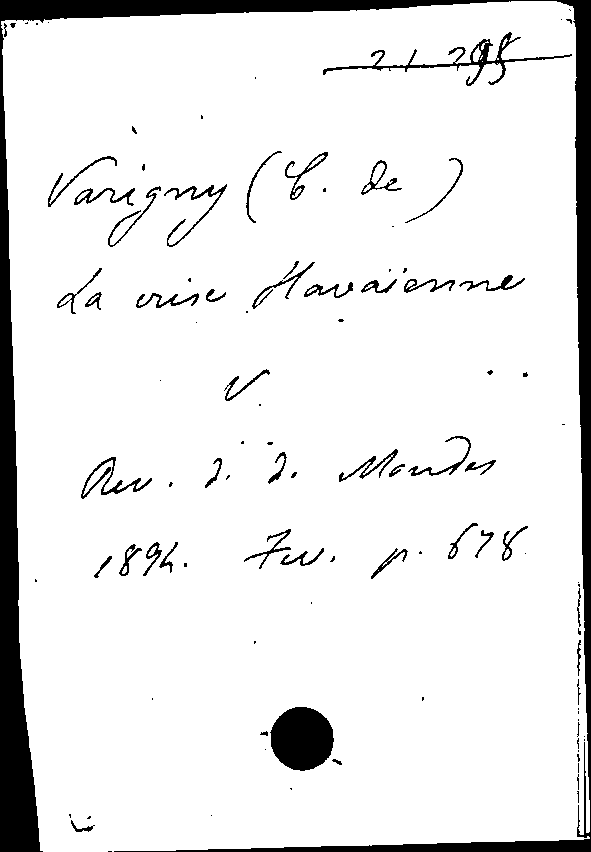 21298
Varigny (C. de)
La crise Havaïenne
V.
Rev. d. d. Mondes
1894. Fev. p. 678